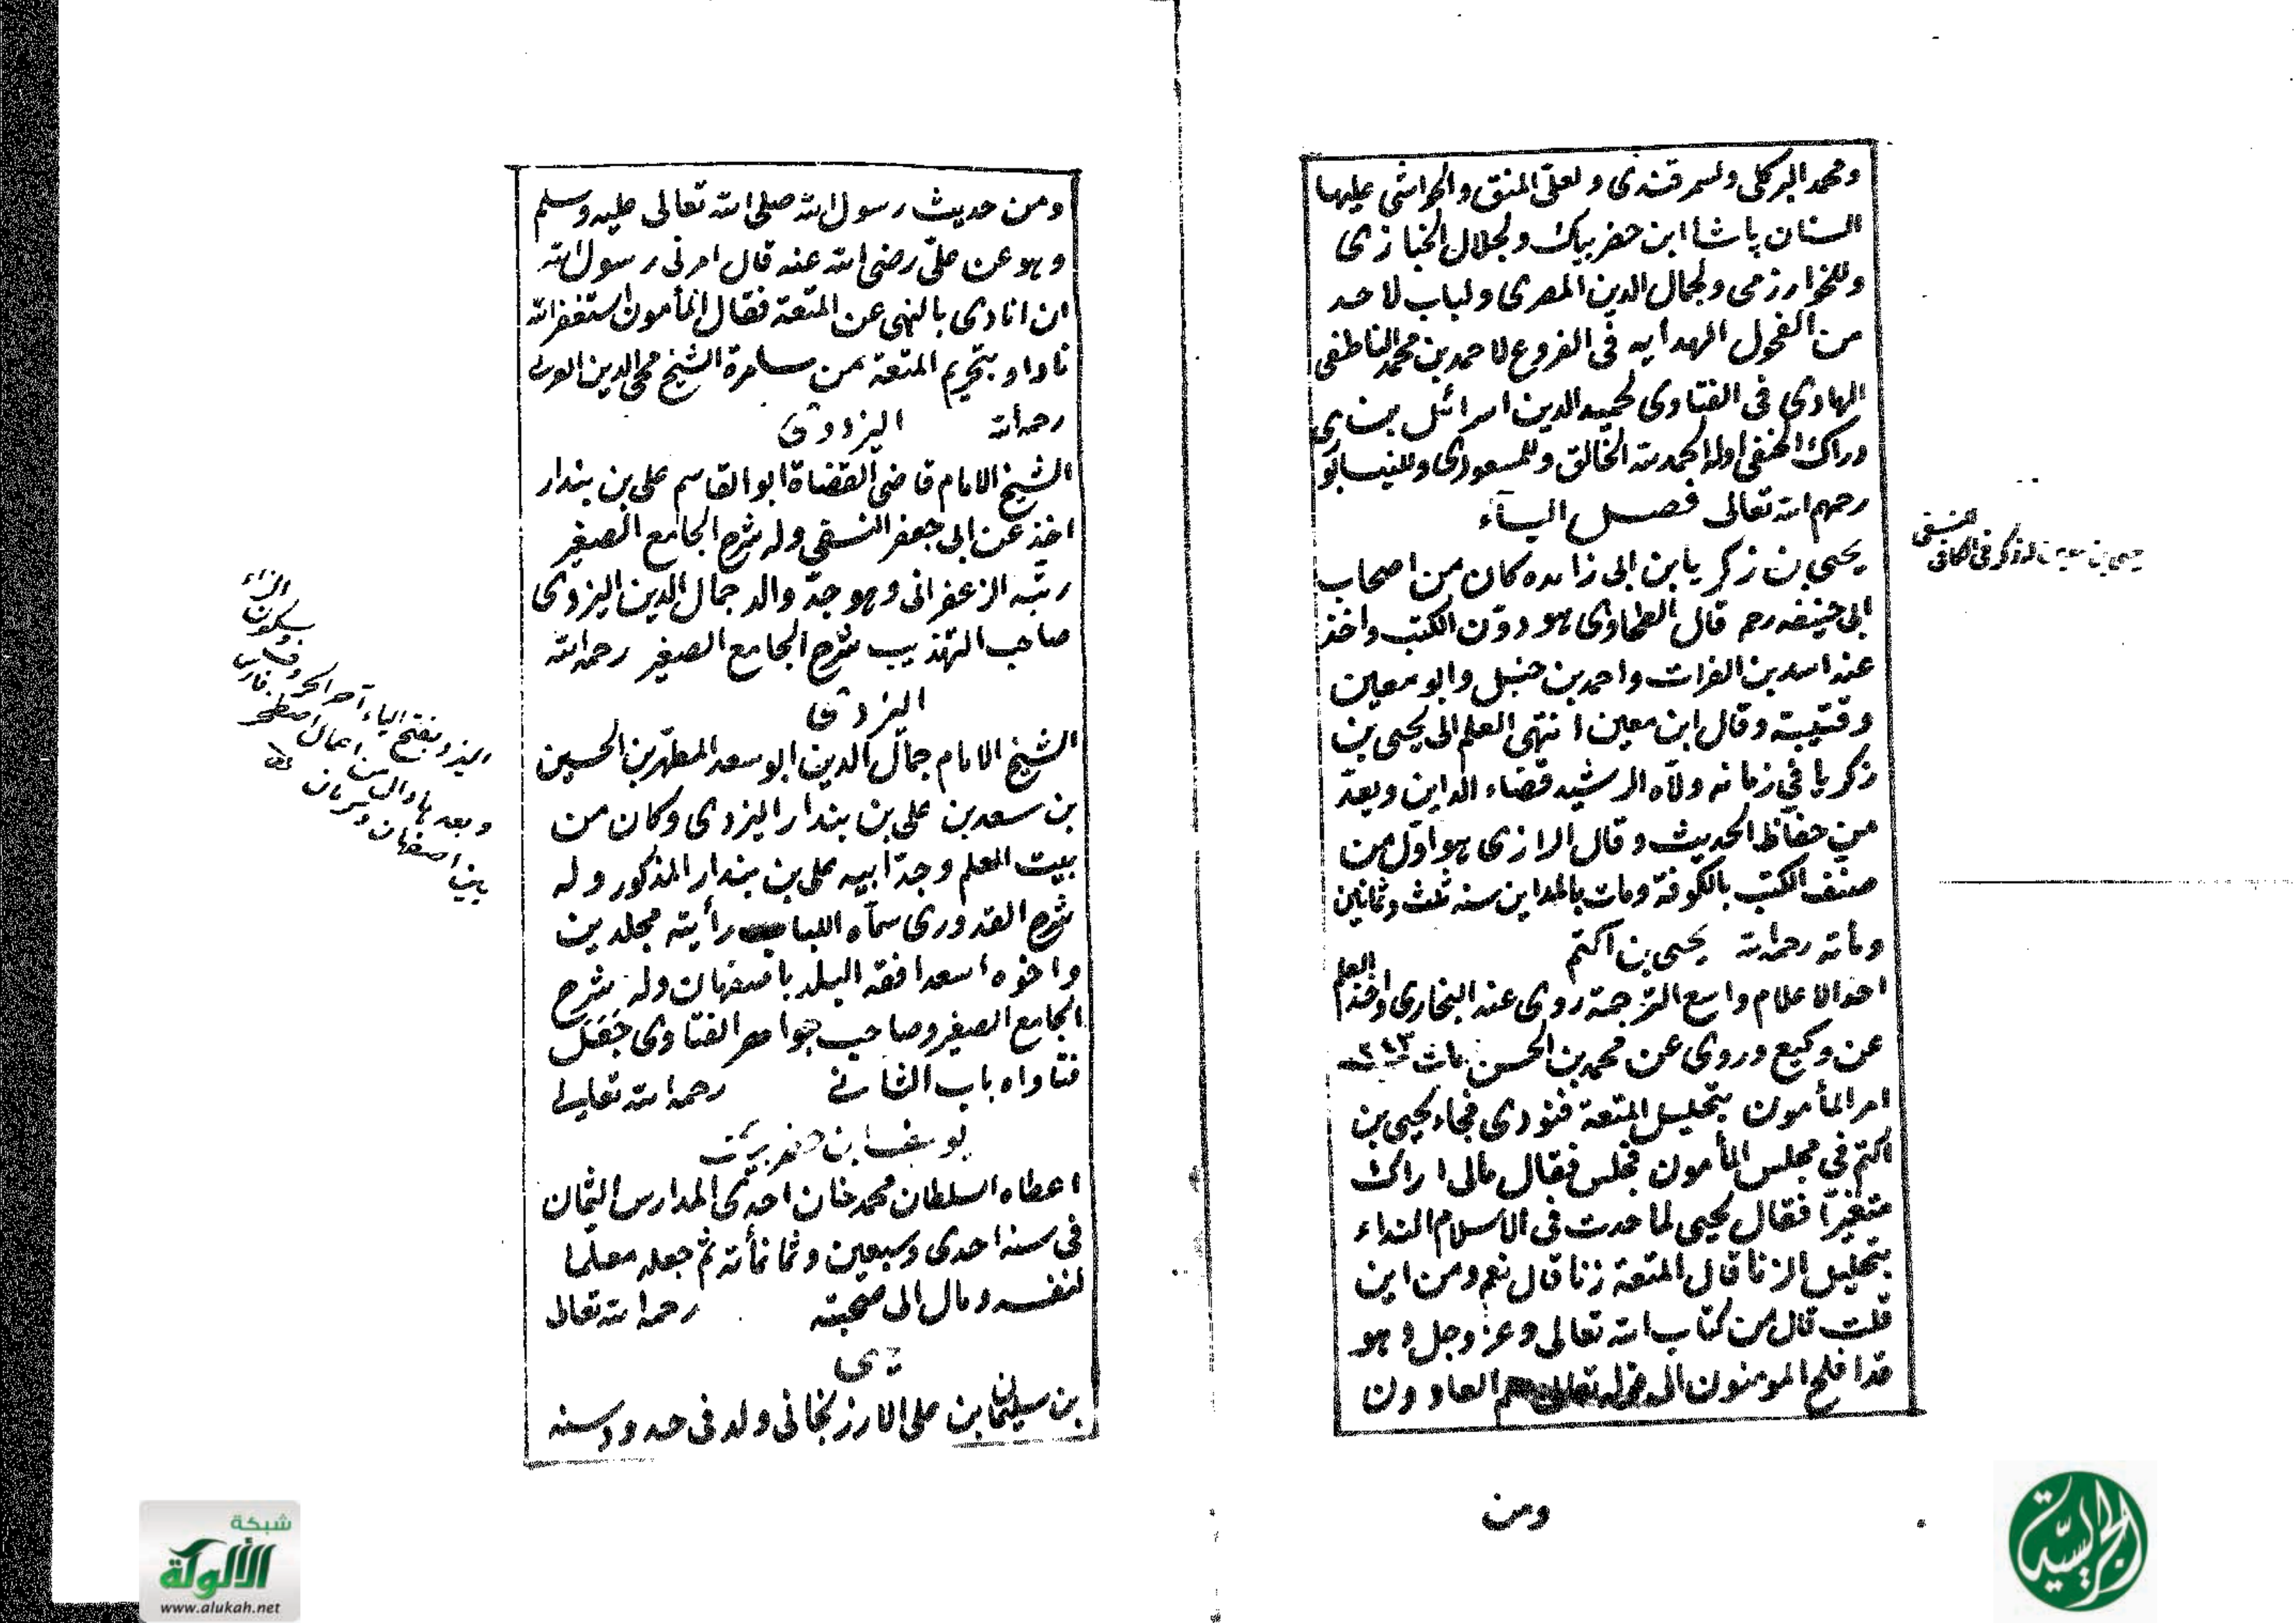 ومحمد البركلى ولسمرقندى ولعلى المنق والحواشى عليها
السنان پاشا ابن خضر بيك ولجلال الخبازى
وللخوارزمى ولجمال الدين المصرى ولباب لاحد
من الفحول الهدايه فى الفروع لاحمد بن محمد الناطفى
الهادى فى الفتاوى لحميد الدين اسرائل بن
دراك الحنفى اوله الحمد لله الخالق وللمسعودى وللنيسابو
رحمهم الله تعالى فصل اليآء
يحيى بن زكريا بن ابى زائده كان من اصحاب
ابى حنيفه رحم قال الطحاوى هو دوّن الكتب واخذ
عنه اسد بن الفرات واحمد بن حنبل وابو معين
وقتيبة وقال ابن معين انتهى العلم الى يحيى بن
زكريا فى زمانه ولاه الرشيد قضاء المداين ويعدّ
من حفاظ الحديث وقال الرازى هو اول من
صنف الكتب بالكوفة ومات بالمداين سنه ثلث وثمانين
ومأته رحمه الله يحيى بن اكتم
احد الاعلام واسع الترجمة روى عنه البخارى واخذ العلم
عن وكيع وروى عن محمد بن الحسن مات ٢٤٣
امر المأمون بتحليل المتعة فنودى فجاء يحيى بن
اكتم فى مجلس المأمون فجلس فقال مالى اراك
متغيّرا فقال يحيى لما حدث فى الاسلام النداء
بتحليل الزنا قال المتعة زنا قال نعم ومن اين
قلت قال من كتاب الله تعالى وعز وجل وهو
قد افلح المومنون الى قوله تعالى هم العادون
ومن
يحيى بن معين ذكر فى الكافى
للنسفى
ومن حديث رسول الله صلى الله تعالى عليه وسلم
وهو عن علىّ رضى الله عنه قال امرنى رسول الله
ان انادى بالنهى عن المتعة فقال المأمون استغفر الله
نادوا بتحريم المتعة من مسامرة الشيخ محى الدين العربى
رحمه الله اليزدوى
الشيخ الامام قاضى القضاة ابو القاسم على بن بندار
اخذ عن ابى جعفر النسفى وله شرح الجامع الصغير
رتّبه الزعفرانى وهو جدّ والد جمال الدين اليزدى
صاحب التهذيب شرح الجامع الصغير رحمه الله
اليزدى
الشيخ الامام جمال الدين ابو سعد المطهر بن الحسين
بن سعد بن على بن بندار اليزدى وكان من
بيت العلم وجدّ ابيه على بن بندار المذكور وله
شرح القدورى سمآه اللباب رأيته مجلدين
واخوه اسعد افقه البلد باصفهان وله شرح
الجامع الصغير وصاحب جواهر الفتاوى جَعَلَ
فتاواه باب الثانى رحمه الله تعالى
يوسف بن خضر بيك
اعطاه السلطان محمد خان احدى المدارس الثمان
فى سنه احدى وسبعين وثمانمأته ثم جعله معلما
لنفسه ومال الى صحبته رحمه الله تعالى
بن سليمان بن على الارزنجانى ولد فى حدود سنه
اليزد بفتح الياء آخر الحروف وسكون الزاء
وبعدها دال من اعمال اصطخر فارس
بين اصفهان وكرمان
شبكة
الألوكة
www.alukah.net